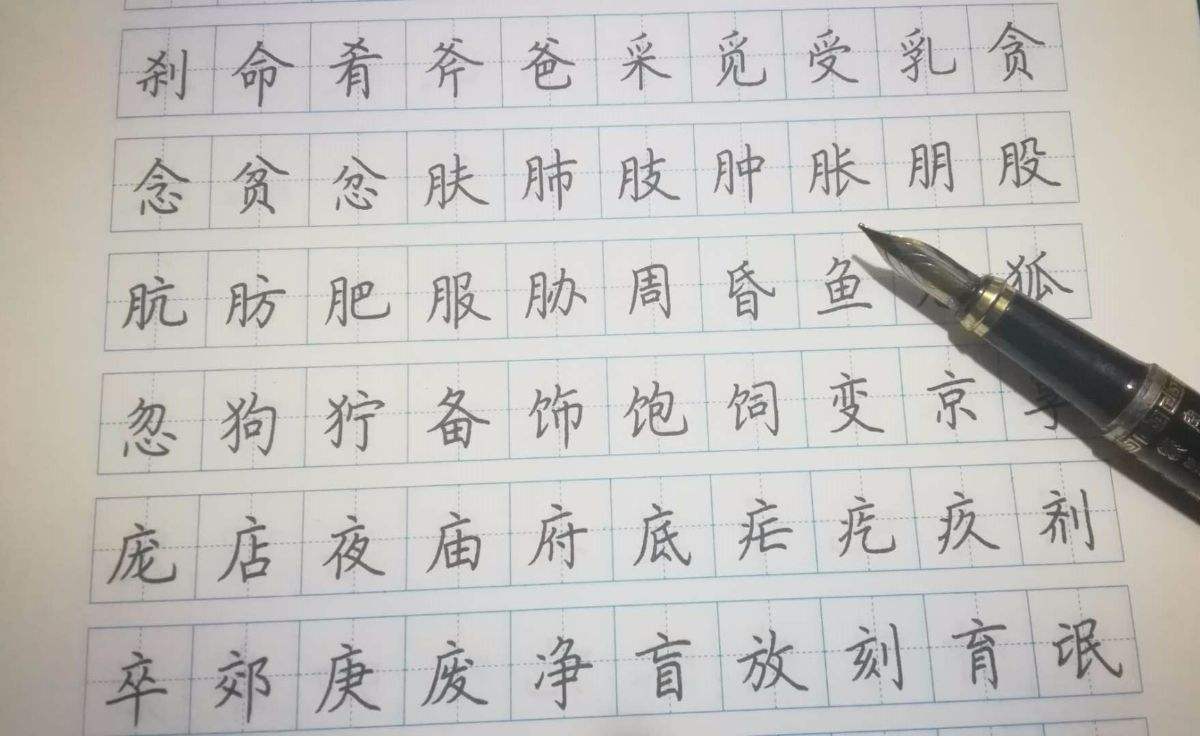 刹命肴斧爸采觅受乳贪
念贫忿肤肺肢肿胀朋股
肮肪肥服胁周昏鱼狐
忽狗狞备饰饱饲变京
庞店夜庙府底疟疙疚剂
卒郊庚废净盲放刻育氓